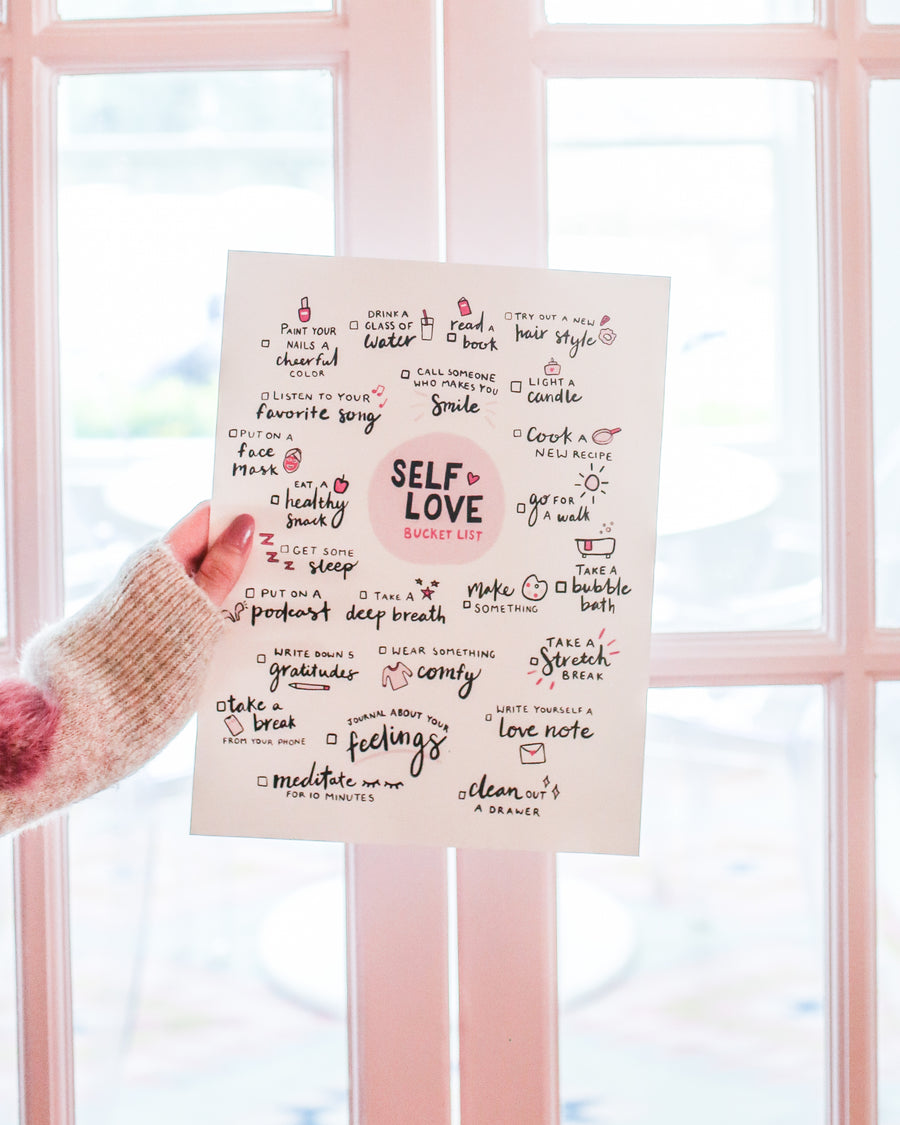 PAINT YOUR
NAILS A
cheerful
COLOR
DRINK A
GLASS OF
water
read A
book
TRY OUT A NEW
hair style
LISTEN TO YOUR
favorite song
CALL SOMEONE
WHO MAKES YOU
Smile
LIGHT A
candle
PUT ON A
face
mask
COOK A
NEW RECIPE
EAT A
healthy
snack
SELF
LOVE
BUCKET LIST
go FOR
A walk
Z
Z
Z
GET SOME
sleep
TAKE A
bubble
bath
PUT ON A
podcast
TAKE A
deep breath
make
SOMETHING
WRITE DOWN 5
gratitudes
WEAR SOMETHING
comfy
TAKE A
Stretch
BREAK
take a
break
FROM YOUR PHONE
JOURNAL ABOUT YOUR
feelings
WRITE YOURSELF A
love note
meditate
FOR 10 MINUTES
clean OUT
A DRAWER